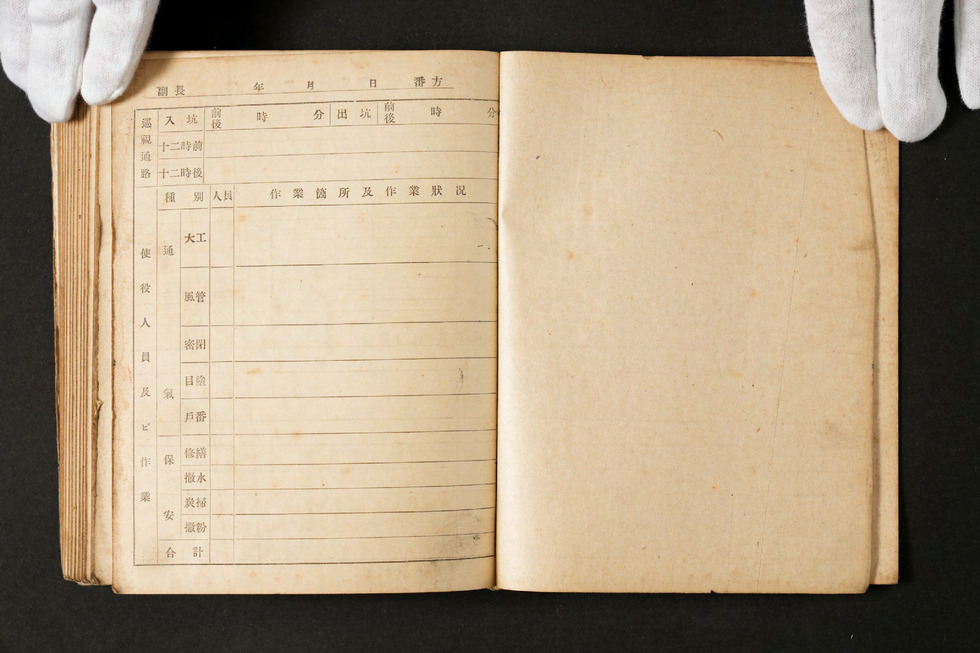 副長 年 月 日 番方
巡視通路
入坑 前後 時 分 出坑 前後 時 分
十二時前
十二時後
使役人員及ビ作業
種別 人員 作業箇所及作業狀況
通氣
大工
風管
密閉
目塗
戶番
保安
修繕
撒水
炭掃
撒粉
合計